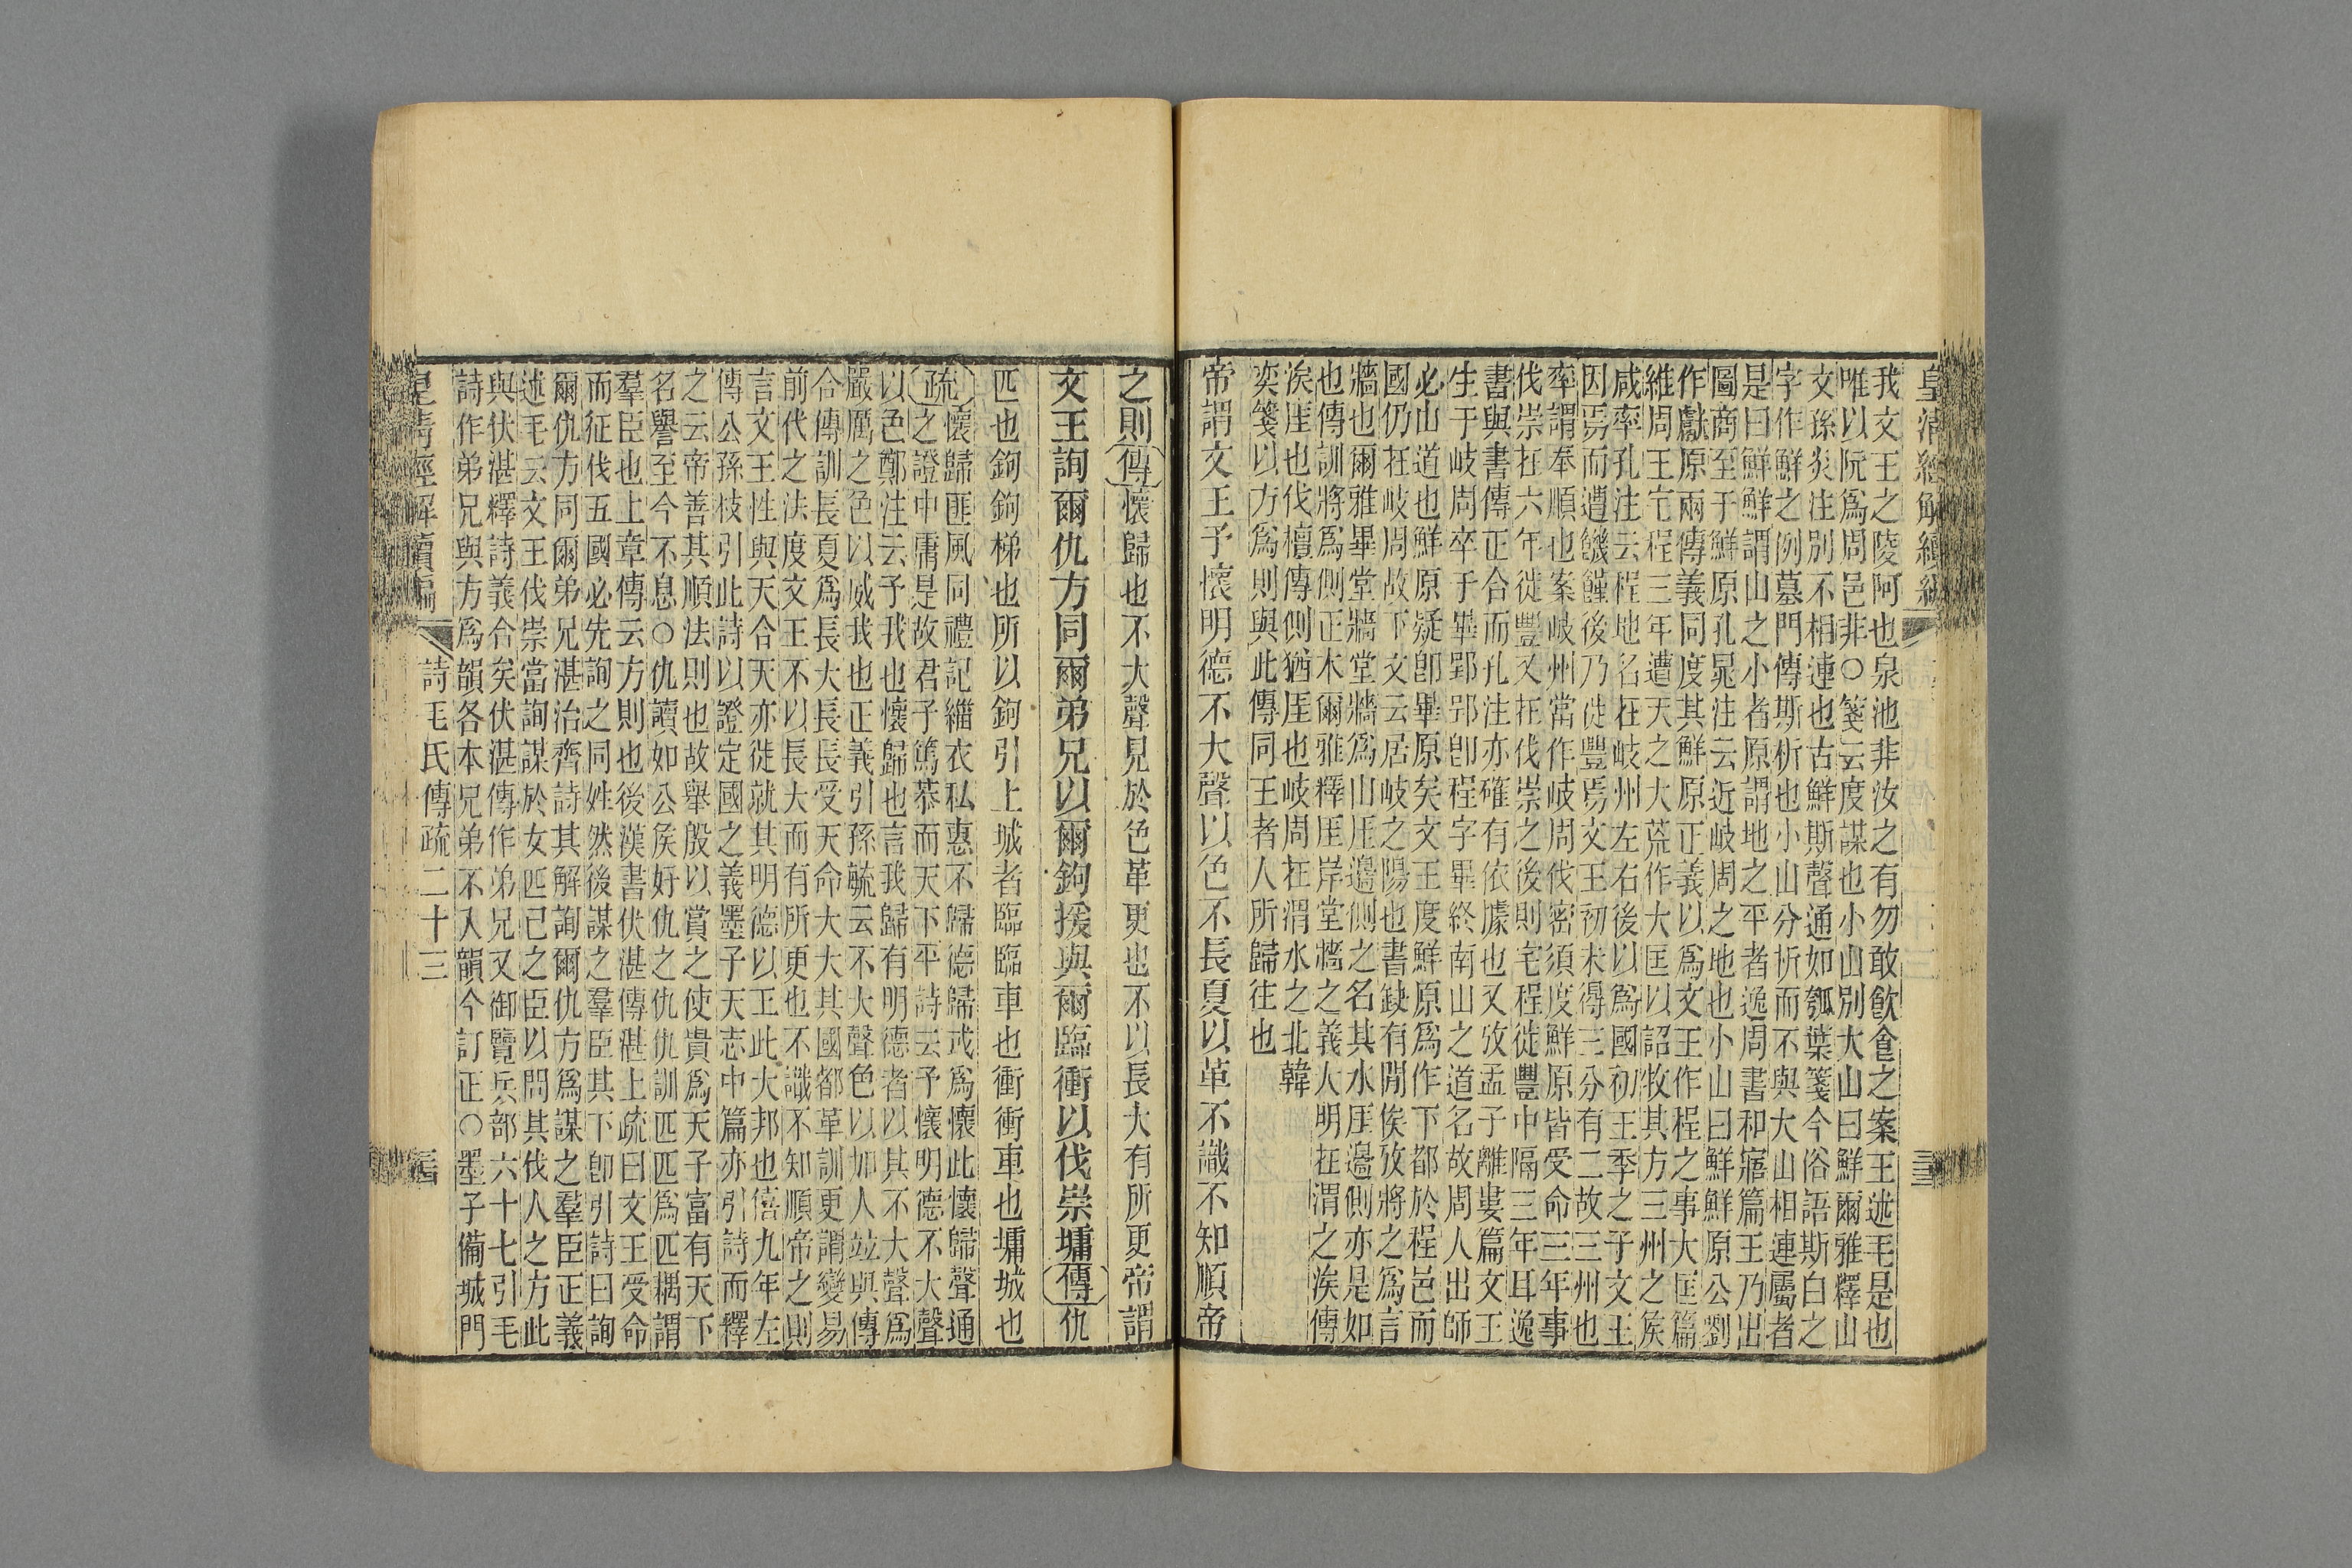 皇清經解續編
我文王之陵阿也泉池非汝之有勿敢飲食之案王述毛是也
唯以阮爲周邑非○箋云度謀也小山別大山曰鮮爾雅釋山
文孫炎注別不相連也古鮮斯聲通如瓠葉箋今俗語斯白之
字作鮮之例墓門傳斯析也小山分析而不與大山相連屬者
是曰鮮鮮謂山之小者原謂地之平者逸周書和寤篇王乃出
圖商至于鮮原孔晁注云近岐周之地也小山曰鮮鮮原公劉
作巘原兩傳義同度其鮮原正義以爲文王作程之事大匡篇
維周王宅程三年遭天之大荒作大匡以詔牧其方三州之矦
咸率孔注云程地名在岐州左右後以爲國初王季之子文王
因焉而遭饑饉後乃徙豐焉文王初未得三分有二故三州也
率謂奉順也案岐州當作岐周伐密須度鮮原皆受命三年事
伐崇在六年徙豐又在伐崇之後則宅程徙豐中隔三年耳逸
書與書傳正合而孔注亦確有依據也又攷孟子離婁篇文王
生于岐周卒于畢郢郢卽程字畢終南山之道名故周人出師
必山道也鮮原疑卽畢原矣文王度鮮原爲作下都於程邑而
國仍在岐周故下文云居岐之陽也書缺有閒俟攷將之爲言
牆也爾雅畢堂牆堂牆爲山厓邊側之名其水厓邊側亦是如
也傳訓將爲側正本爾雅釋厓岸堂牆之義大明在渭之涘傳
涘厓也伐檀傳側猶厓也岐周在渭水之北韓
奕箋以方爲則與此傳同王者人所歸往也
帝謂文王予懷明德不大聲以色不長夏以革不識不知順帝
之則傳懷歸也不大聲見於色革更也不以長大有所更帝謂
文王詢爾仇方同爾弟兄以爾鉤援與爾臨衝以伐崇墉傳仇
匹也鉤鉤梯也所以鉤引上城者臨臨車也衝衝車也墉城也
疏懷歸匪風同禮記緇衣私惠不歸德歸或爲懷此懷歸聲通
之證中庸是故君子篤恭而天下平詩云予懷明德不大聲
以色鄭注云予我也懷歸也言我歸有明德者以其不大聲爲
嚴厲之色以威我也正義引孫毓云不大聲色以加人竝與傳
合傳訓長夏爲長大長長受天命大大其國都革訓更謂變易
前代之法度文王不以長大而有所更也不識不知順帝之則
言文王性與天合天亦徙就其明德以王此大邦也僖九年左
傳公孫枝引此詩以證定國之義墨子天志中篇亦引詩而釋
之云帝善其順法則也故舉殷以賞之使貴爲天子富有天下
名譽至今不息○仇讀如公矦好仇之仇仇訓匹匹爲匹耦謂
羣臣也上章傳云方則也後漢書伏湛傳湛上疏曰文王受命
而征伐五國必先詢之同姓然後謀之羣臣其下卽引詩曰詢
爾仇方同爾弟兄湛治齊詩其解詢爾仇方爲謀之羣臣正義
述毛云文王伐崇當詢謀於女匹已之臣以問其伐人之方此
與伏湛釋詩義合矣伏湛傳作弟兄又御覽兵部六十七引毛
詩作弟兄與方爲韻各本兄弟不入韻今訂正○墨子備城門
皇清經解續編 詩毛氏傳疏二十三